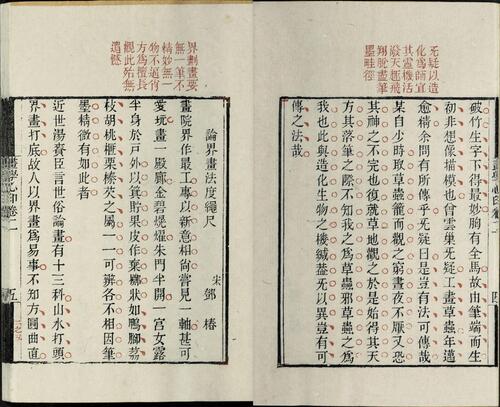 无疑以造
化爲師宜
其靈機活
潑天趣飛
翔脫盡筆
墨畦徑
四
破竹生字下得最妙胸有全馬故由筆端而生
初非想像描模也曾雲巢无疑工畫草蟲年邁
愈精余問有所傳乎无疑曰是豈有法可傳哉
某自少時取草蟲籠而觀之窮晝夜不厭又恐
其神之不完也復就草地觀之於是始得其天
方其落筆之際不知我之爲草蟲邪草蟲之爲
我也此與造化生物之機緘蓋无以異豈有可
傳之法哉
界劃畫要
無一筆不
精妙無一
物不逼肖
方爲擅長
觀此始無
遺憾
論界畫法度繩尺
宋 鄧椿
畫院界作最工專以新意相尚嘗見一軸甚可
愛玩畫一殿廊金碧熀耀朱門半開一宮女露
半身於戶外以箕貯果皮作棄擲狀如鴨脚荔
枝胡桃榧栗榛芡之屬一一可辨各不相因筆
墨精微有如此者
近世湯賚臣言世俗論畫有十三科山水打頭
界畫打底故人以界畫爲易事不知方圓曲直
畫學心印卷二 五